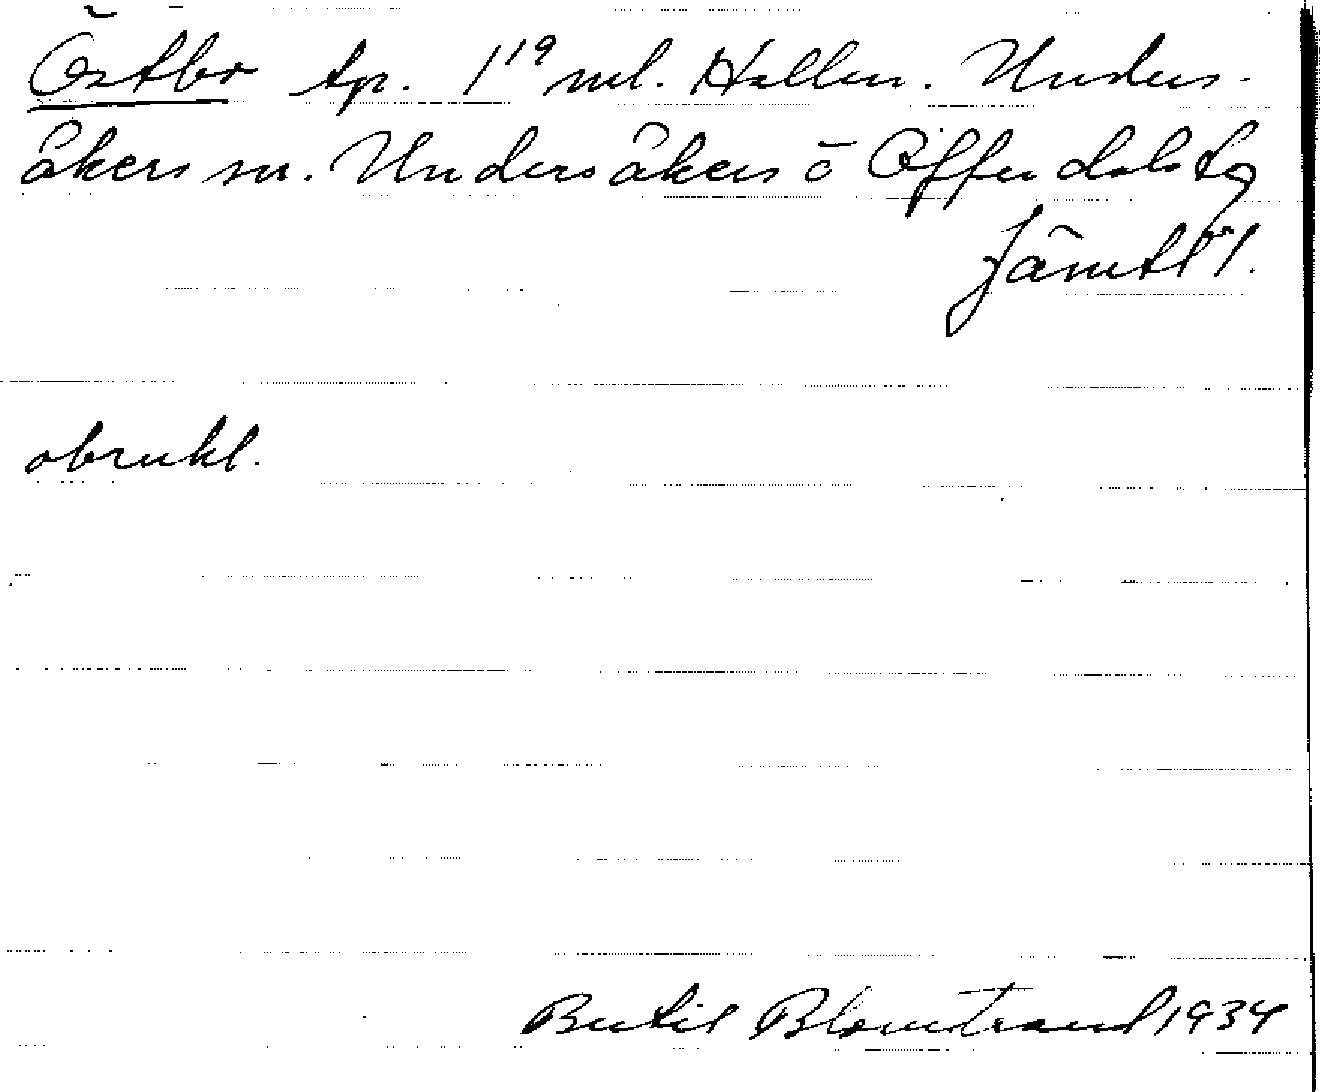 Östbo tp. 1¹⁹ ml. Hallen. Unders-
åkers sn. Undersåkers o Offerdals tg
Jämtl l.
obrukl.
Bertil Blomstrand 1934